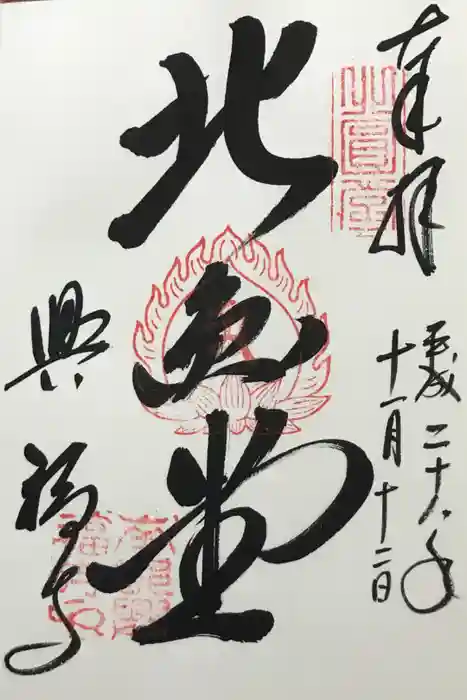 奉拝
平成二十八年
十一月十二日
北円堂
興福寺